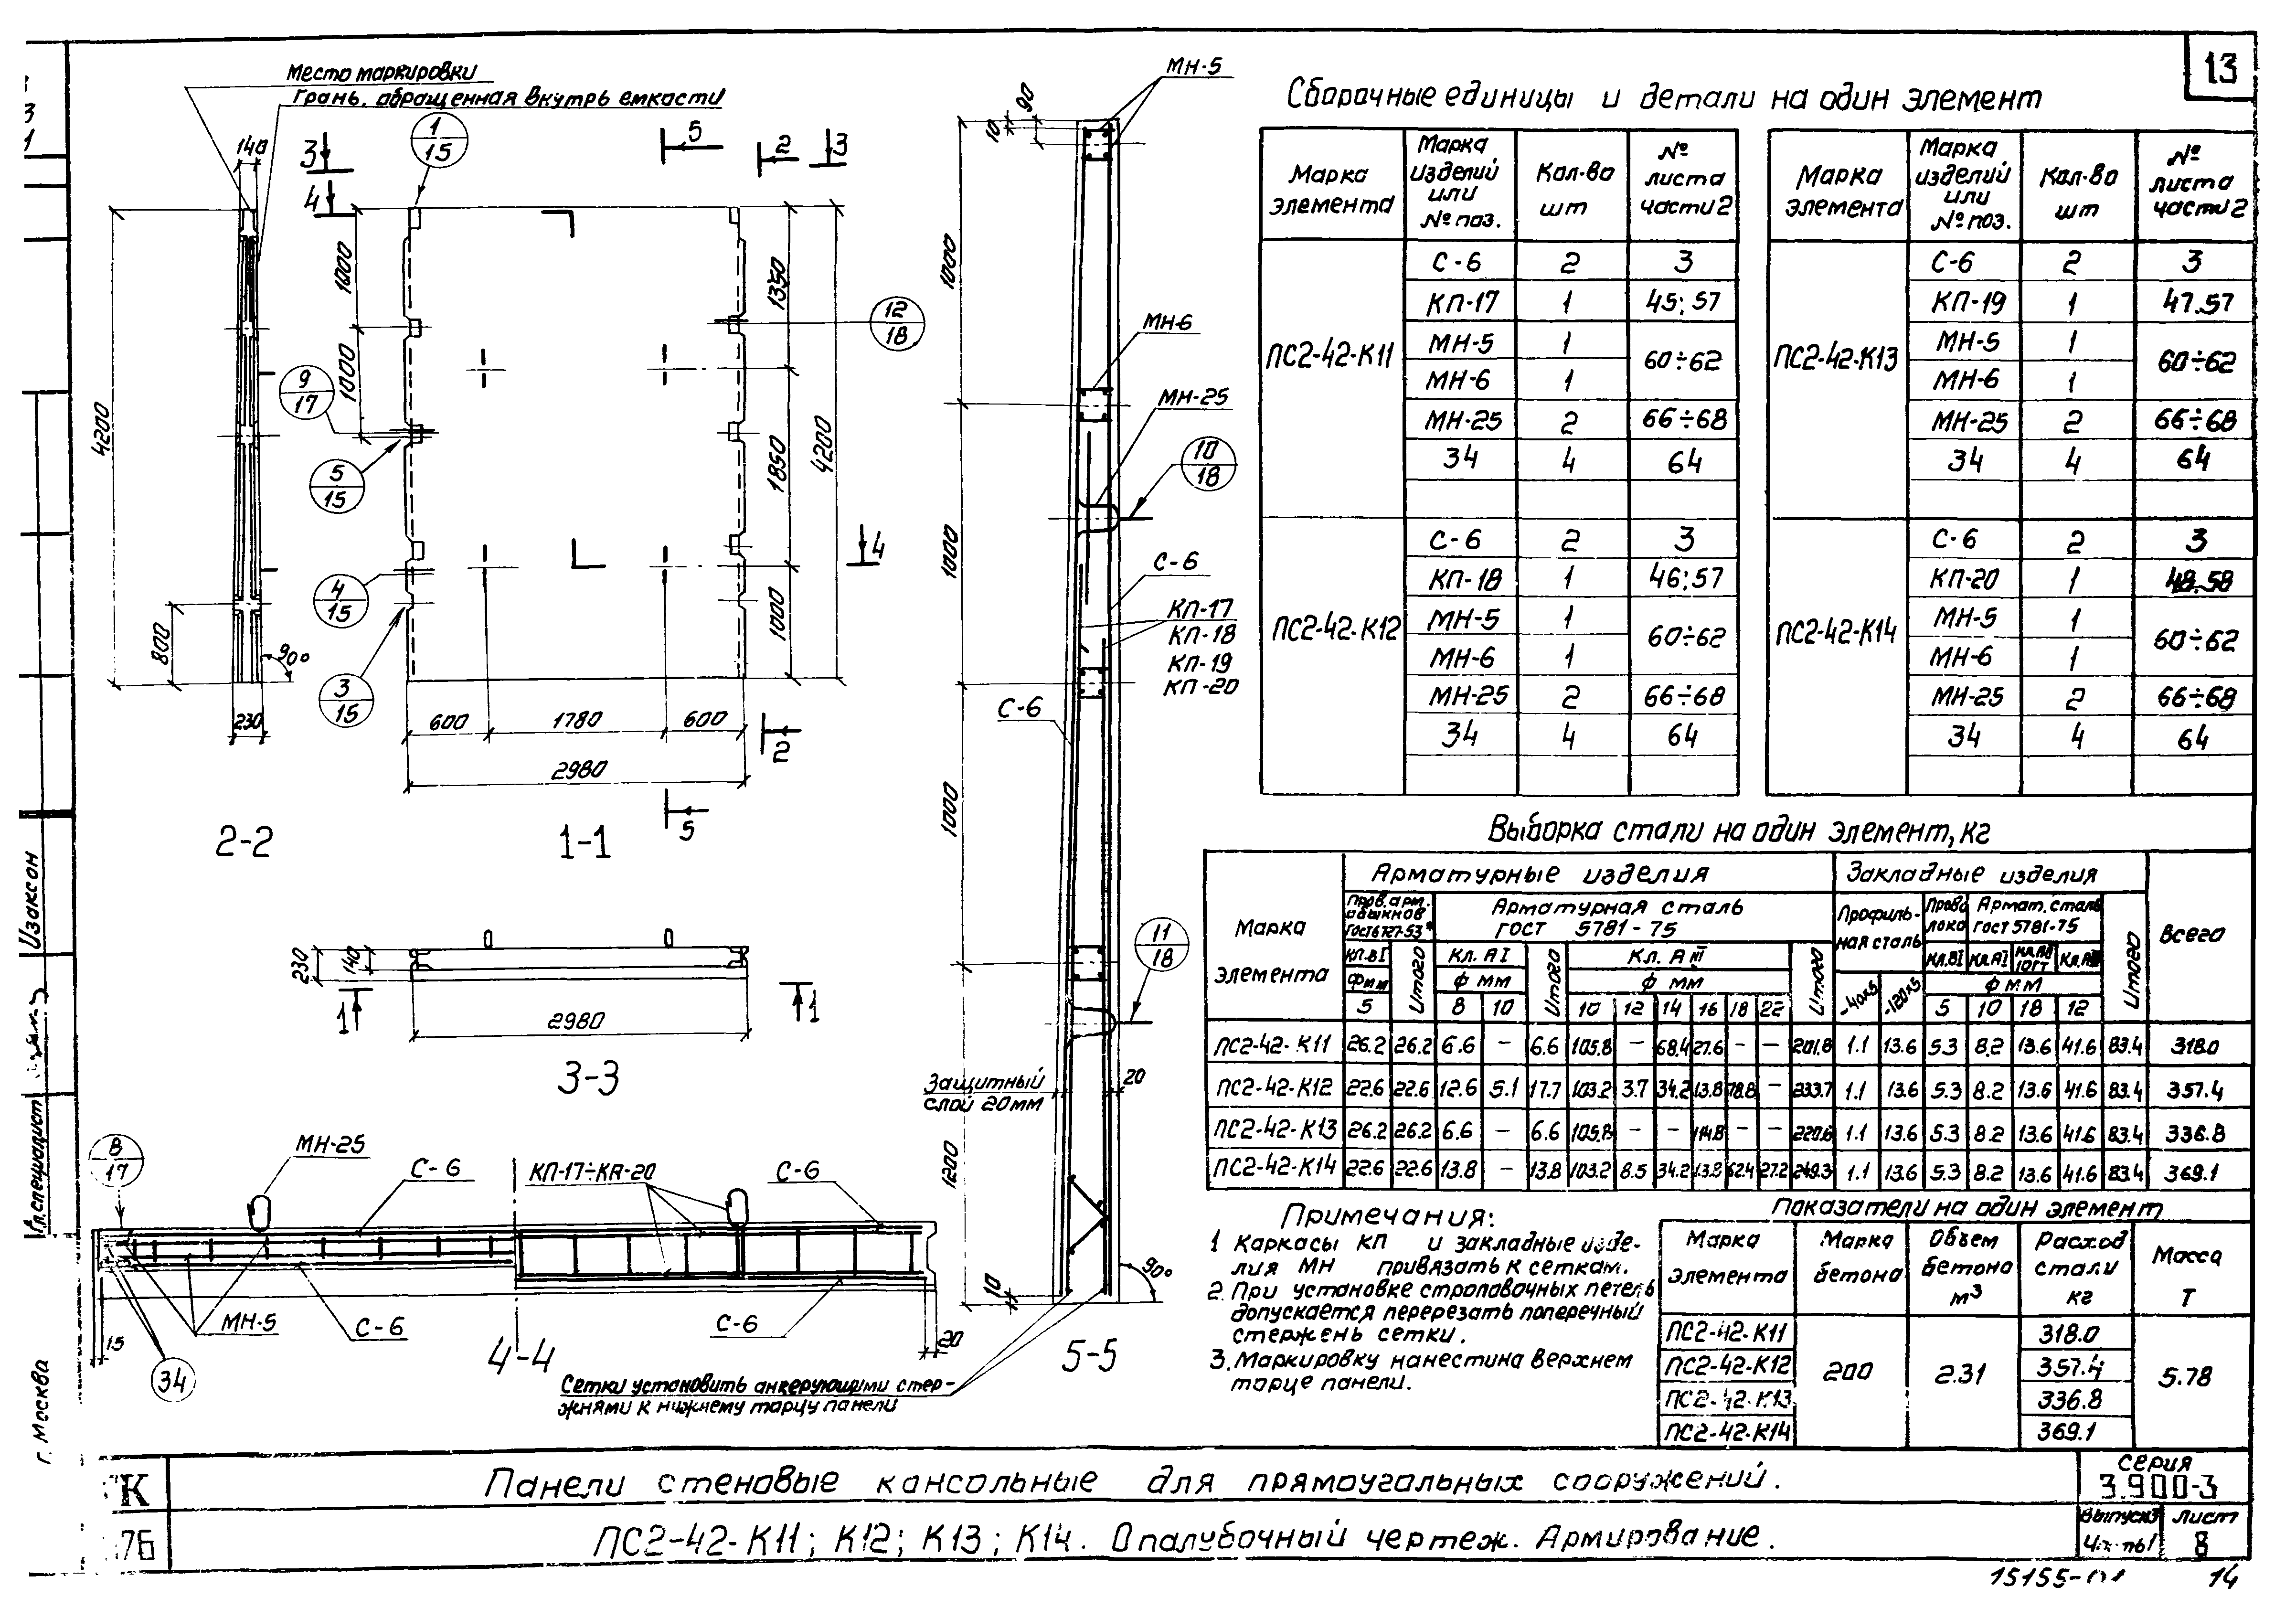 13
Место маркировки
Грань, обращенная внутрь емкости
140
4200
800
230
90°
2-2
1
15
3
4
5
2
3
1000
1000
9
17
5
15
4
15
3
15
12
18
1350
1850
1000
4200
4
600
1780
600
2980
2
5
1-1
230
140
2980
1
1
3-3
8
17
МН-25
С-6
КП-17÷КП-20
С-6
МН-5
С-6
С-6
15
20
34
4-4
Сетки установить анкерующими стер-
жнями к нижнему торцу панели
МН-5
90
10
1000
МН-6
МН-25
10
18
1000
С-6
КП-17
КП-18
КП-19
КП-20
С-6
1000
11
18
Защитный
слой 20мм
20
1200
10
90°
5-5
Сборочные единицы и детали на один элемент
Марка элемента Марка изделий или № поз. Кол-во шт № листа части 2
ПС2-42-К11
С-6 2 3
КП-17 1 45; 57
МН-5 1 60÷62
МН-6 1
МН-25 2 66÷68
34 4 64
ПС2-42-К12
С-6 2 3
КП-18 1 46; 57
МН-5 1 60÷62
МН-6 1
МН-25 2 66÷68
34 4 64
Марка элемента Марка изделий или № поз. Кол-во шт № листа части 2
ПС2-42-К13
С-6 2 3
КП-19 1 47.57
МН-5 1 60÷62
МН-6 1
МН-25 2 66÷68
34 4 64
ПС2-42-К14
С-6 2 3
КП-20 1 48.58
МН-5 1 60÷62
МН-6 1
МН-25 2 66÷68
34 4 64
Выборка стали на один элемент, кг
Марка элемента Арматурные изделия Закладные изделия Всего
Пров. арм. обыкнов ГОСТ 6727-53* Арматурная сталь ГОСТ 5781-75 Профиль-ная сталь Прово лока Армат. сталь ГОСТ 5781-75 Итого
Кл. ВI Итого Кл. АI Итого Кл. АIII Итого Кл. ВI Кл. АI Кл. АIII
Ф мм Ф мм Ф мм -40x5 -120x5 Ф мм
5 8 10 10 12 14 16 18 22 5 10 18 12
ПС2-42-К11 26.2 26.2 6.6 – 6.6 105.8 – 68.4 27.6 – – 201.8 1.1 13.6 5.3 8.2 13.6 41.6 83.4 318.0
ПС2-42-К12 22.6 22.6 12.6 5.1 17.7 103.2 3.7 34.2 13.8 78.8 – 233.7 1.1 13.6 5.3 8.2 13.6 41.6 83.4 357.4
ПС2-42-К13 26.2 26.2 6.6 – 6.6 105.8 – – 114.8 – – 220.6 1.1 13.6 5.3 8.2 13.6 41.6 83.4 336.8
ПС2-42-К14 22.6 22.6 13.8 – 13.8 103.2 8.5 34.2 13.8 62.4 27.2 249.3 1.1 13.6 5.3 8.2 13.6 41.6 83.4 369.1
Примечания:
1 Каркасы КП и закладные изде-
лия МН привязать к сеткам.
2. При установке строповочных петель
допускается перерезать поперечный
стержень сетки.
3. Маркировку нанести на верхнем
торце панели.
Показатели на один элемент
Марка элемента Марка бетона Объем бетона м3 Расход стали кг Масса Т
ПС2-42-К11 200 2.31 318.0 5.78
ПС2-42-К12 357.4
ПС2-42-К13 336.8
ПС2-42-К14 369.1
Изаксон
Гл.специалист
г. Москва
ТК
76
Панели стеновые консольные для прямоугольных сооружений.
ПС2-42-К11; К12; К13; К14. Опалубочный чертеж. Армирование.
серия
3.900-3
Выпуск3
лист
8
14